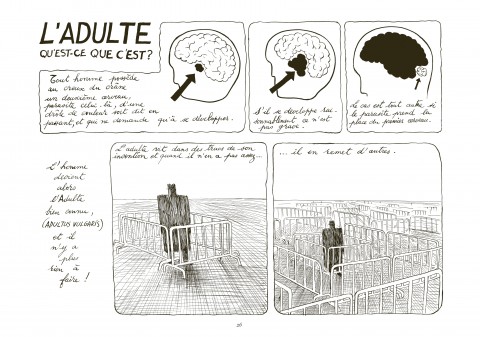 L'ADULTE
QU'EST-CE QUE C'EST?
Tout homme possède
au creux du crâne
un deuxième cerveau,
parasite celui-là, d'une
drôle de couleur soit dit en
passant, et qui ne demande qu'à se développer.
S'il se développe rai-
sonnablement ce n'est
pas grave.
Le cas est tout autre si
le parasite prend la
place du premier cerveau.
L'homme
devient
alors
l'Adulte
bien connu,
(ADULTUS VULGARIS)
et il
n'y a
plus
rien à
faire !
L'adulte vit dans des trucs de son
invention et quand il n'en a pas assez...
... il en remet d'autres.